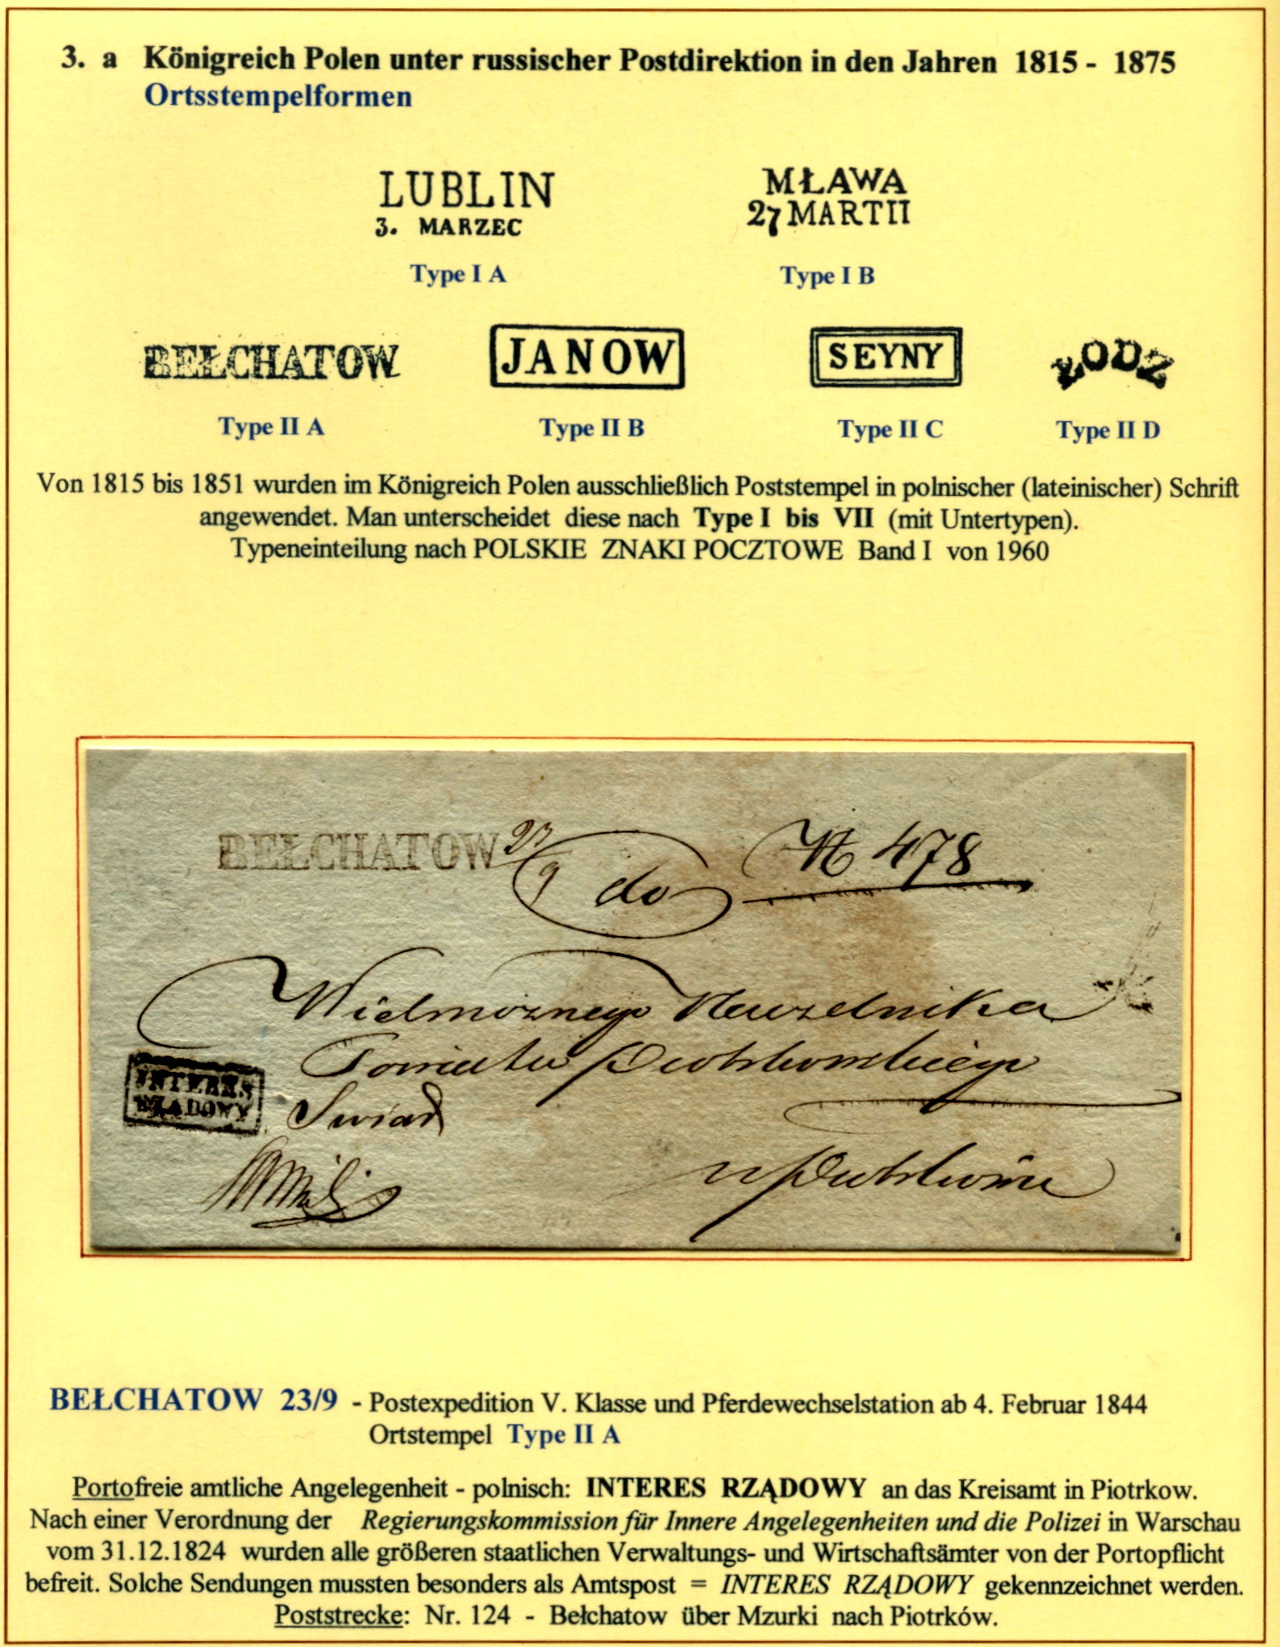 3. a Königreich Polen unter russischer Postdirektion in den Jahren 1815 - 1875
Ortsstempelformen
LUBLIN
3. MARZEC
Type I A
MŁAWA
27 MARTII
Type I B
BEŁCHATOW
Type II A
JANOW
Type II B
SEYNY
Type II C
ŁODZ
Type II D
Von 1815 bis 1851 wurden im Königreich Polen ausschließlich Poststempel in polnischer (lateinischer) Schrift
angewendet. Man unterscheidet diese nach Type I bis VII (mit Untertypen).
Typeneinteilung nach POLSKIE ZNAKI POCZTOWE Band I von 1960
BEŁCHATOW 23/9
do
N 478
Wielmoznego Naczelnika
Powiatu Piotrkowskiego
INTERES
RZĄDOWY
w Piotrkowie
BEŁCHATOW 23/9 - Postexpedition V. Klasse und Pferdewechselstation ab 4. Februar 1844
Ortstempel Type II A
Portofreie amtliche Angelegenheit - polnisch: INTERES RZĄDOWY an das Kreisamt in Piotrkow.
Nach einer Verordnung der Regierungskommission für Innere Angelegenheiten und die Polizei in Warschau
vom 31.12.1824 wurden alle größeren staatlichen Verwaltungs- und Wirtschaftsämter von der Portopflicht
befreit. Solche Sendungen mussten besonders als Amtspost = INTERES RZĄDOWY gekennzeichnet werden.
Poststrecke: Nr. 124 - Bełchatow über Mzurki nach Piotrków.